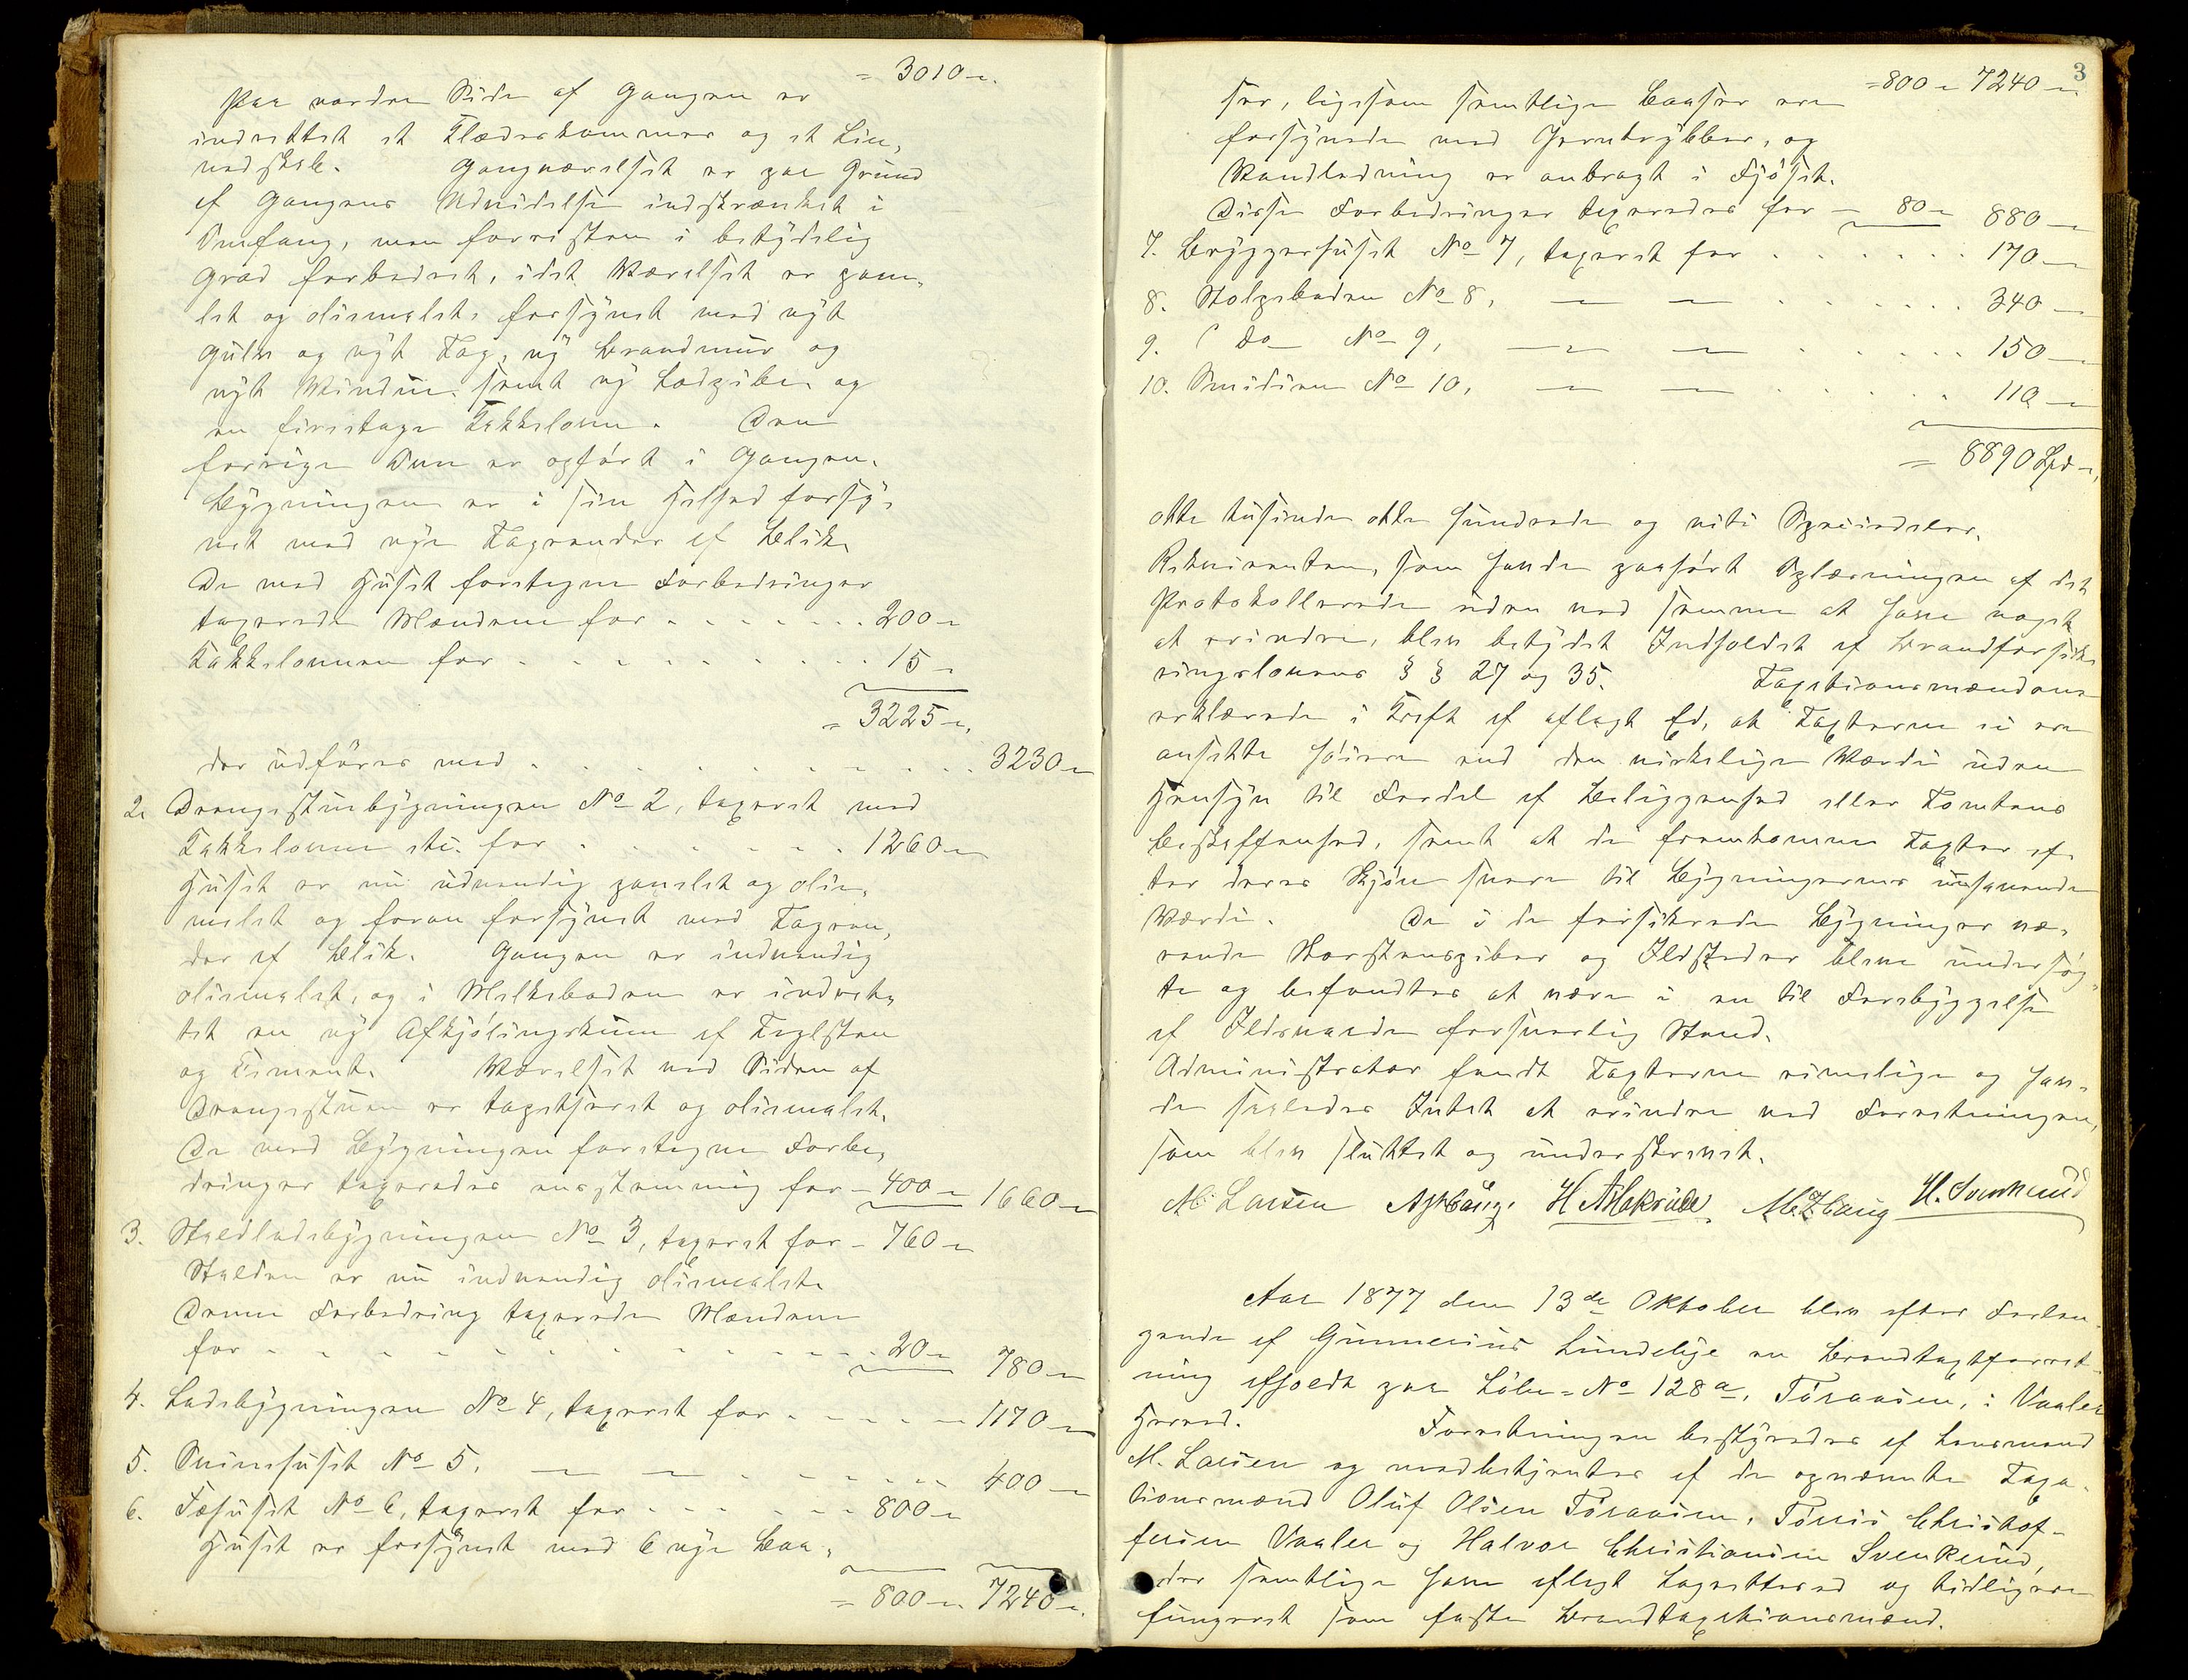 = 3010 -
Paa nordre Side af Gangen er
indrettet et Klædeskammer og et Lin-
nedskab. Gangværelset er paa Grund
af Gangens Udvidelse indskrænket i
Omfang, men forresten i betydelig
Grad forbedret, idet Værelset er pane-
let og oliemalet, forsynet med nyt
Gulv og nyt Tag, ny Brandmur og
nyt Vindue samt ny Lodpibe og
en fireetages Kakkelovn. Den
forrige Ovn er opført i Gangen.
Bygningen er i sin Helhed forsy-
net med nye Tagrender af Blik.
De med Huset foretagne Forbedringer
taxerede Mændene for - - - - 200 -
Kakkelovnen for - - - - 15 -
= 3225 -
der udføres med - - - - 3230 -
2. Drengestubygningen No 2, taxeret med
Kakkelovne etc. for - - - - 1260 -
Huset er nu udvendig panelet og olie-
malet og foran forsynet med Tagren-
der af Blik. Gangen er indvendig
oliemalet, og i Melkeboden er indret-
tet en ny Afkjølingskum af Teglsten
og Cement. Værelset ved Siden af
Drengestuen er tapetseret og oliemalet.
De ved Bygningen foretagne Forbe-
dringer taxeredes enstemmig for - 400 - 1660 -
3. Staldladebygningen No 3, taxeret for - 760 -
Stalden er nu indvendig oliemalet.
Denne Forbedring taxerede Mændene
for - - - - 20 - 780 -
4. Ladebygningen No 4, taxeret for - - - - 1170 -
5. Svinehuset No 5, — — - - - - 400 -
6. Fæhuset No 6, taxeret for - - - - 800 -
Huset er forsynet med 6 nye Baa-
= 800 - 7240 -
3
= 800 - 7240 -
ser, ligesom samtlige Baaser ere
forsynede med Jernkrybber, og
Vandledning er anbragt i Fjøset.
Disse Forbedringer taxeredes for - 80 - 880 -
7. Bryggerhuset No 7, taxeret for . . . . 170 -
8. Stolpeboden No 8, — — . . . . 340 -
9. Do No 9, — — . . . . 150 -
10. Smidien No 10, — — . . . . 110 -
= 8890 Spd -
otte tusinde otte hundrede og niti Speciedaler.
Rekvirenten, som havde paahørt Oplæsningen af det
Protokollerede uden ved samme at have noget
at erindre, blev betydet Indholdet af Brandforsik-
ringslovens § § 27 og 35. Taxationsmændene
erklærede i Kraft af aflagt Ed, at Taxterne ei ere
ansatte høiere end den virkelige Værdi uden
Hensyn til Fordel af Beliggenhed eller Tomtens
Beskaffenhed, samt at de fremkomne Taxter ef-
ter deres Skjøn svare til Bygningernes nuhavende
Værdi. De i de forsikrede Bygninger væ-
rende Skorstenspiber og Ildsteder bleve undersøg-
te og befandtes at være i en til Forebyggelse
af Ildsvaade forsvarlig Stand.
Administrator fandt Taxterne rimelige og hav-
de saaledes Intet at erindre ved Forretningen,
som blev sluttet og underskrevet.
M. Larsen H. Svenkerud
Aar 1877 den 13de Oktober blev efter Forlan-
gende af Gunnerius Lundebye en Brandtaxtforret-
ning afholdt paa Løbe=No 128a, Tøraasen, i Vaaler
Herred. Forretningen bestyredes af Lensmand
M. Larsen og medbetjentes af de opnævnte Taxa-
tionsmænd Oluf Olsen Tøraasen, Tørris Christof-
fersen Vaaler og Halvor Christiansen Svenkerud,
der samtlige have aflagt Lagrettesed og tidligere
fungeret som faste Brandtaxationsmænd.